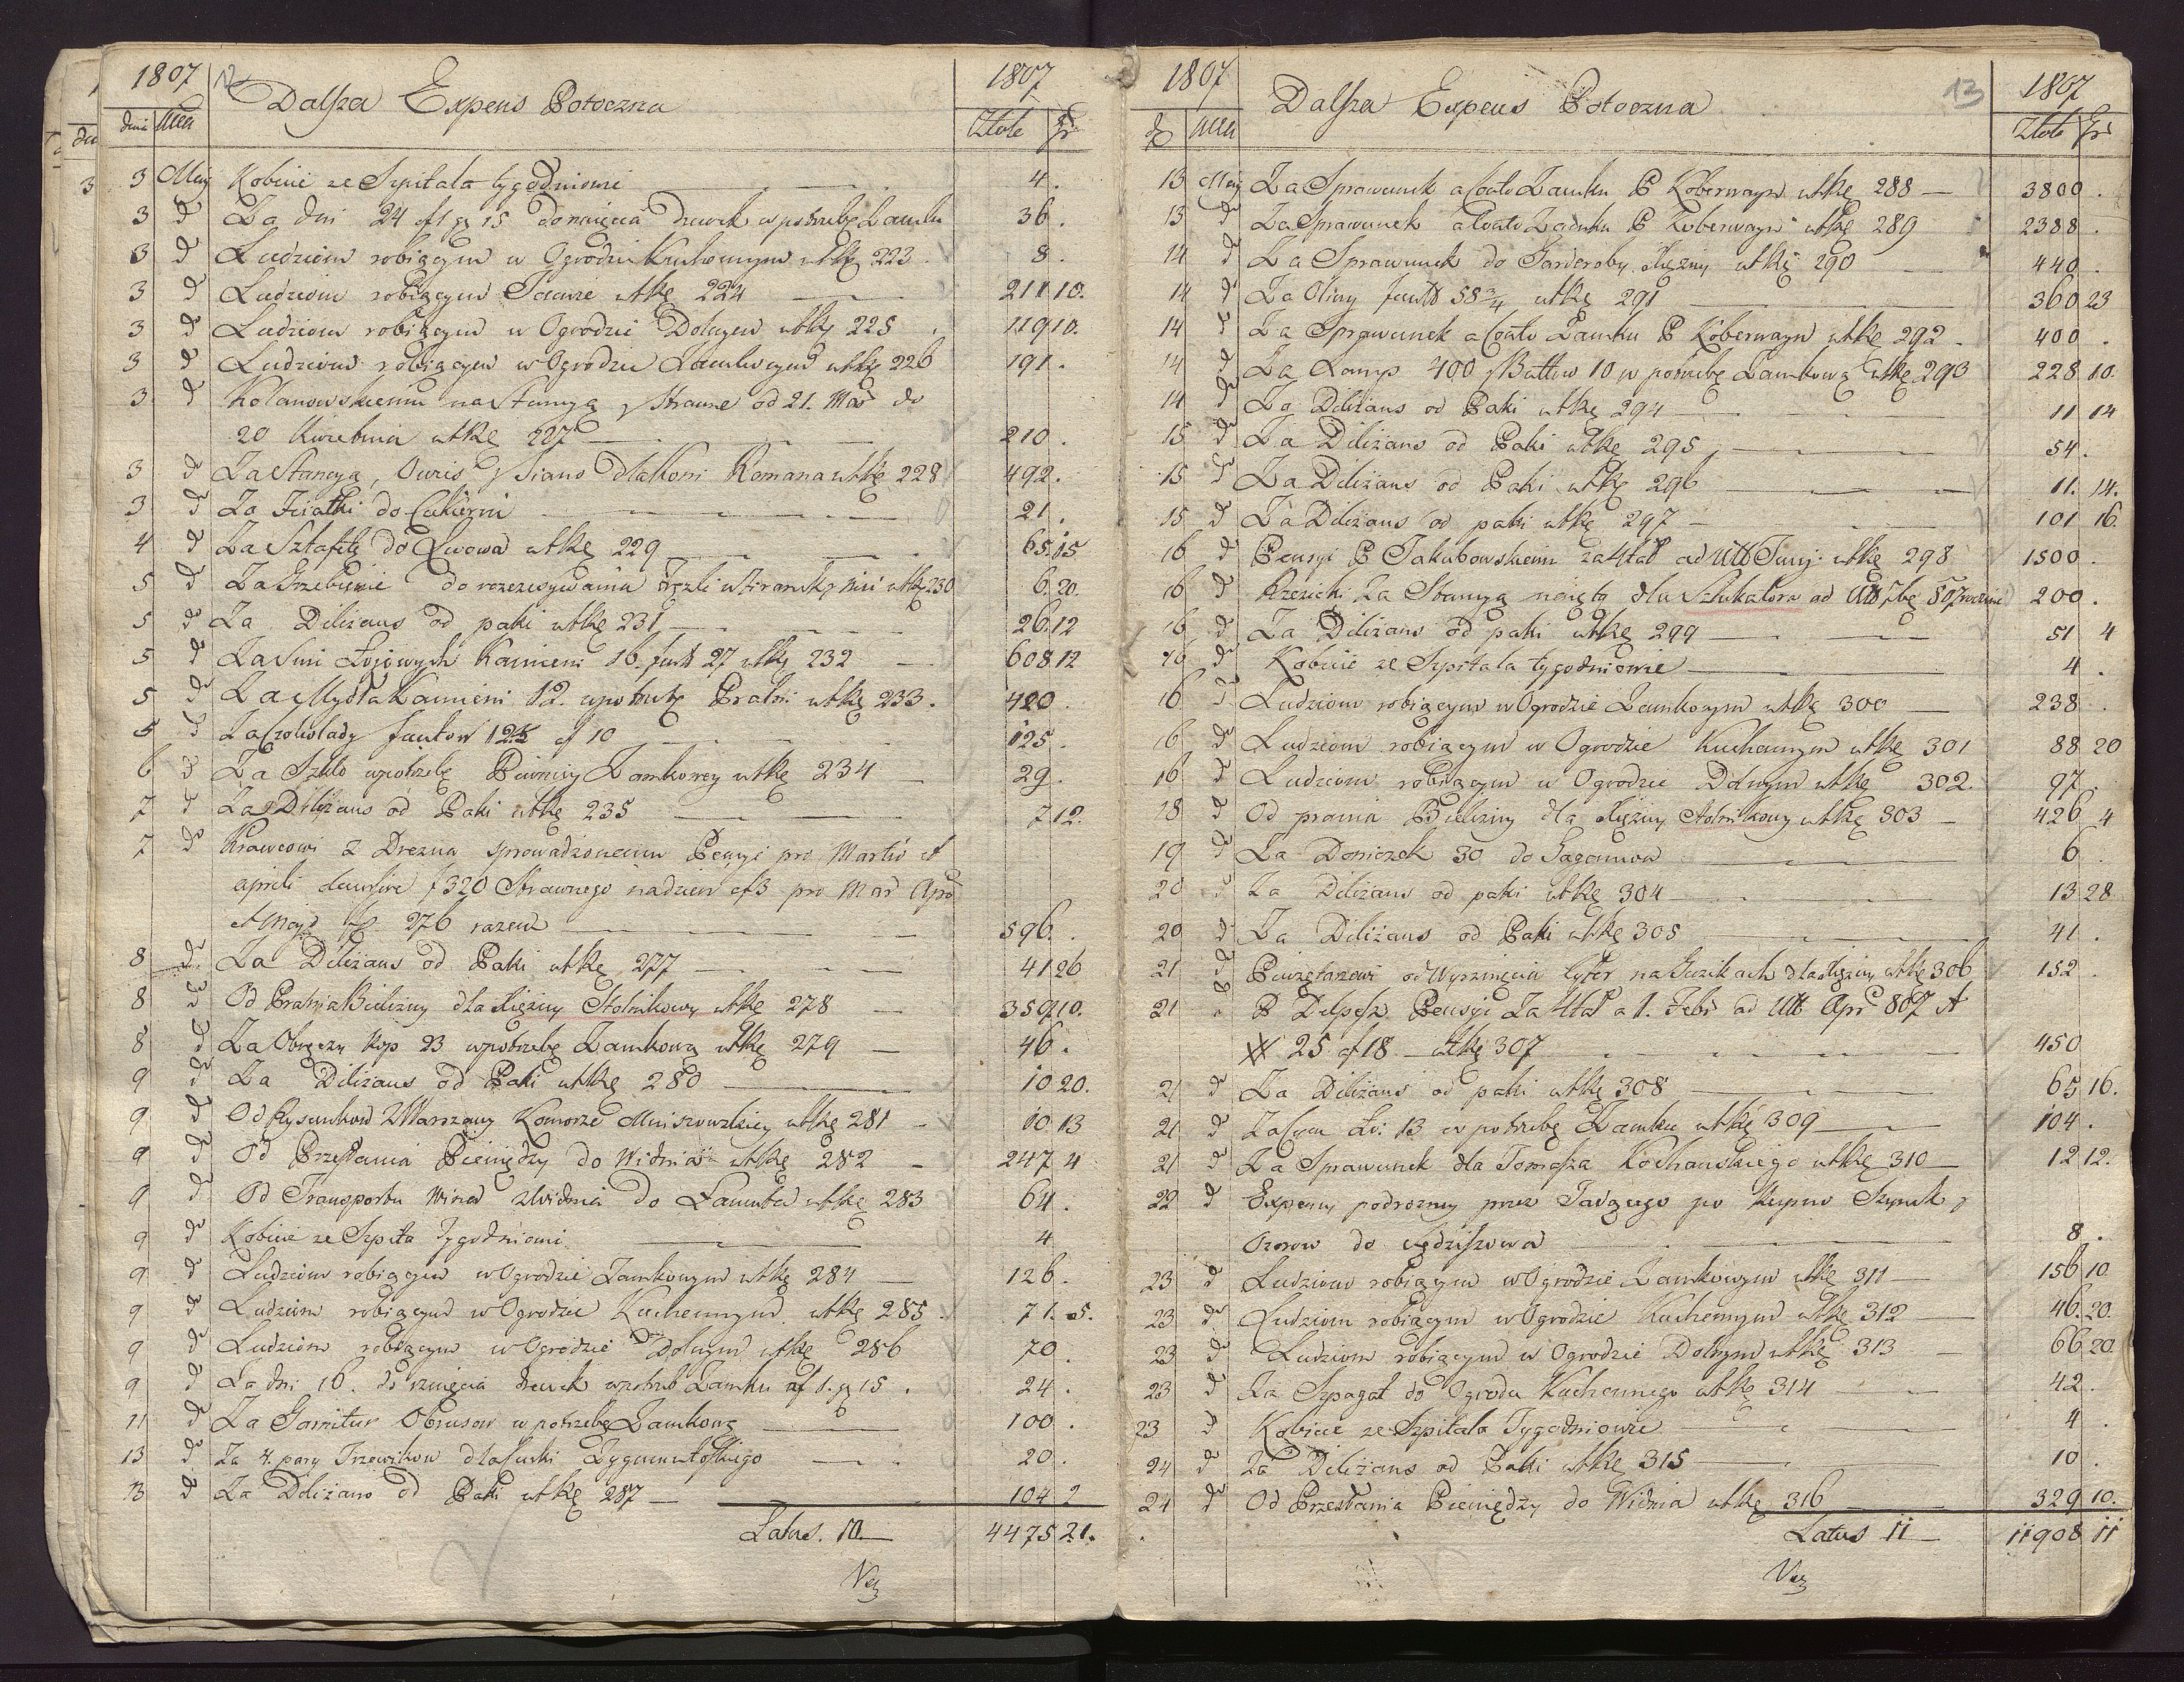 1807 12 Dalsza Expens Potoczna 1807
dnia Mca Złote gr
3 Maj Kobicie ze Szpitala tygodniowie 4.
3 do Za dni 24 af 1 gr 15 do rznięcia drewek w potrzebę Zamku 36.
3 do Ludziom robiącym w Ogrodzie Kuchennym wtkę 223 8.
3 do Ludziom robiącym wtkę 224 211 10.
3 do Ludziom robiącym w Ogrodzie Dolnym wtkę 225 119 10.
3 do Ludziom robiącym w Ogrodzie Zamkowym wtkę 226 191.
3 do Kolanowskiemu na Stancyą y Strawne od 21. Mar do
20 Kwietnia wtkę 227 210.
3 do Za Stancyą, Owis y Siano dla Koni Romana wtkę 228 492.
3 do Za do Cukierni 21.
4 do Za Sztafetę do Lwowa wtkę 229 65 15
5 do Za Grzebienie do rozczesywania wtkę 230 6. 20.
5 do Za Diliżans od paki wtkę 231 26. 12
5 do Za Świe Łojowych Kamieni 16. funt 27 wtkę 232 608 12
5 do Za Mydła Kamieni 12. w potrzebę Pralni wtkę 233. 420.
5 do Za Czokolady funtow 12½ af 10 125.
6 do Za Szkło w potrzebę Piwnicy Zamkowey wtkę 234 29.
7 do Za Diliżans od Paki wtkę 235 7 12.
7 do Krawcowi z Drezna sprowadzonemu Pensyi pro Martio et
aprili f 320 Strawnego na dzien af 3 pro Mar Apr
et Maja 276 razem 596.
8 do Za Diliżans od Paki wtkę 277 41 26
8 do Od Prania Bielizny dla Xiężny Stolnikowy wtkę 278 359 10.
8 do Za Obręczy Kop 23 w potrzebę Zamkową wtkę 279 46.
9 do Za Diliżans od Paki wtkę 280 10 20.
9 do Od Rysunkow z Warszawy Komorze Mniszowskiey wtkę 281 10. 13
9 do Od Przesłania Pieniędzy do Widnia wtkę 282 247 4
9 do Od Transportu Wina z Widnia do Łancuta wtkę 283 64.
9 do Kobicie ze Szpita Tygodniowi 4
9 do Ludziom robiącym w Ogrodzie Zamkowym wtkę 284 126.
9 do Ludziom robiącym w Ogrodzie Kuchennym wtkę 285. 71. 5.
9 do Ludziom robiącym w Ogrodzie Dolnym wtkę 286 70.
9 do Za dni 16. do rznięcia drewek w potrzeb Zamku af 1. gr 15. 24.
11 do Za Garnitur Obrusow w potrzebę Zamkową 100.
13 do Za 4. pary Trzewikow dla Zygmuntoskiego 20.
13 do Za Diliżans od Paki wtkę 287 104 2
Latus. 10. 4475 21.
1807 Dalsza Expens Potoczna 13 1807
d Mca Złote gr
13 Maj Za Sprawunek a Conto Zamku P Koberwayn wtkę 288 3800.
13 do Za Sprawunek a Conto Zamku P Koberwayn wtkę 289 2388.
14 do Za Sprawunek do Garderoby Xiężny wtkę 290 440.
14 do Za Oliwy funt 58¾ wtkę 291 360 23
14 do Za Sprawunek a Conto Zamku P Koberwayn wtkę 292. 400.
14 do Za Lamp 400 y Buttow 10 w potrzebę Zamkową wtkę 293 228 10.
14 do Za Diliżans od Paki wtkę 294 11 14
15 do Za Diliżans od Paki wtkę 295 54.
15 do Za Diliżans od Paki wtkę 296 11. 14.
15 do Za Diliżans od paki wtkę 297 101 16.
16 do Pensyi P Jakubowskiemu ad Ult Junj. wtkę 298 1500.
16 do Rzezicki Za Stancyą naiętą dla Sztukatora ad Ult 807 200.
16 do Za Diliżans od paki wtkę 299 51 4
16 do Kobicie ze Szpitala tygodniowie 4.
16 do Ludziom robiącym w Ogrodzie Zamkowym wtkę 300 238.
16 do Ludziom robiącym w Ogrodzie Kuchennym wtkę 301 88 20
16 do Ludziom robiącym w Ogrodzie Dolnym wtkę 302. 97.
18 do Od prania Bielizny dla Xiężny Stolnikowy wtkę 303 426 4
19 do Za Doniczek 30 do 6.
20 do Za Diliżans od paki wtkę 304 13 28
20 do Za Diliżans od Paki wtkę 305 41.
21 do Pieczętarzowi od Wyrznięcia lyter na Guzikach dla Xiężny wtkę 306 152.
21 do P Delpesz Pensyi a 1. Febr ad Ult Apr 807 et
# 25 af 18 wtkę 307 450
21 do Za Diliżans od paki wtkę 308 65 16.
21 do 13 w potrzebę Zamku wtkę 309 104.
21 do Za Sprawunek dla Tomasza Kochanskiego wtkę 310 12 12.
22 do Expensy podrozney przez Jadącego po Kupno Szynek y
Ozorow do Sędziszowa 8.
23 do Ludziom robiącym w Ogrodzie Zamkowym wtkę 311 156 10
23 do Ludziom robiącym w Ogrodzie Kuchennym wtkę 312 46. 20.
23 do Ludziom robiącym w Ogrodzie Dolnym wtkę 313 66 20
23 do Za Szpagat do Ogrodu Kuchennego wtkę 314 42.
23 do Kobicie ze Szpitala Tygodniowie 4.
24 do Za Diliżans od Paki wtkę 315 10.
24 do Od Przesłania Pieniędzy do Widnia wtkę 316 329 10.
Latus 11 11908 11